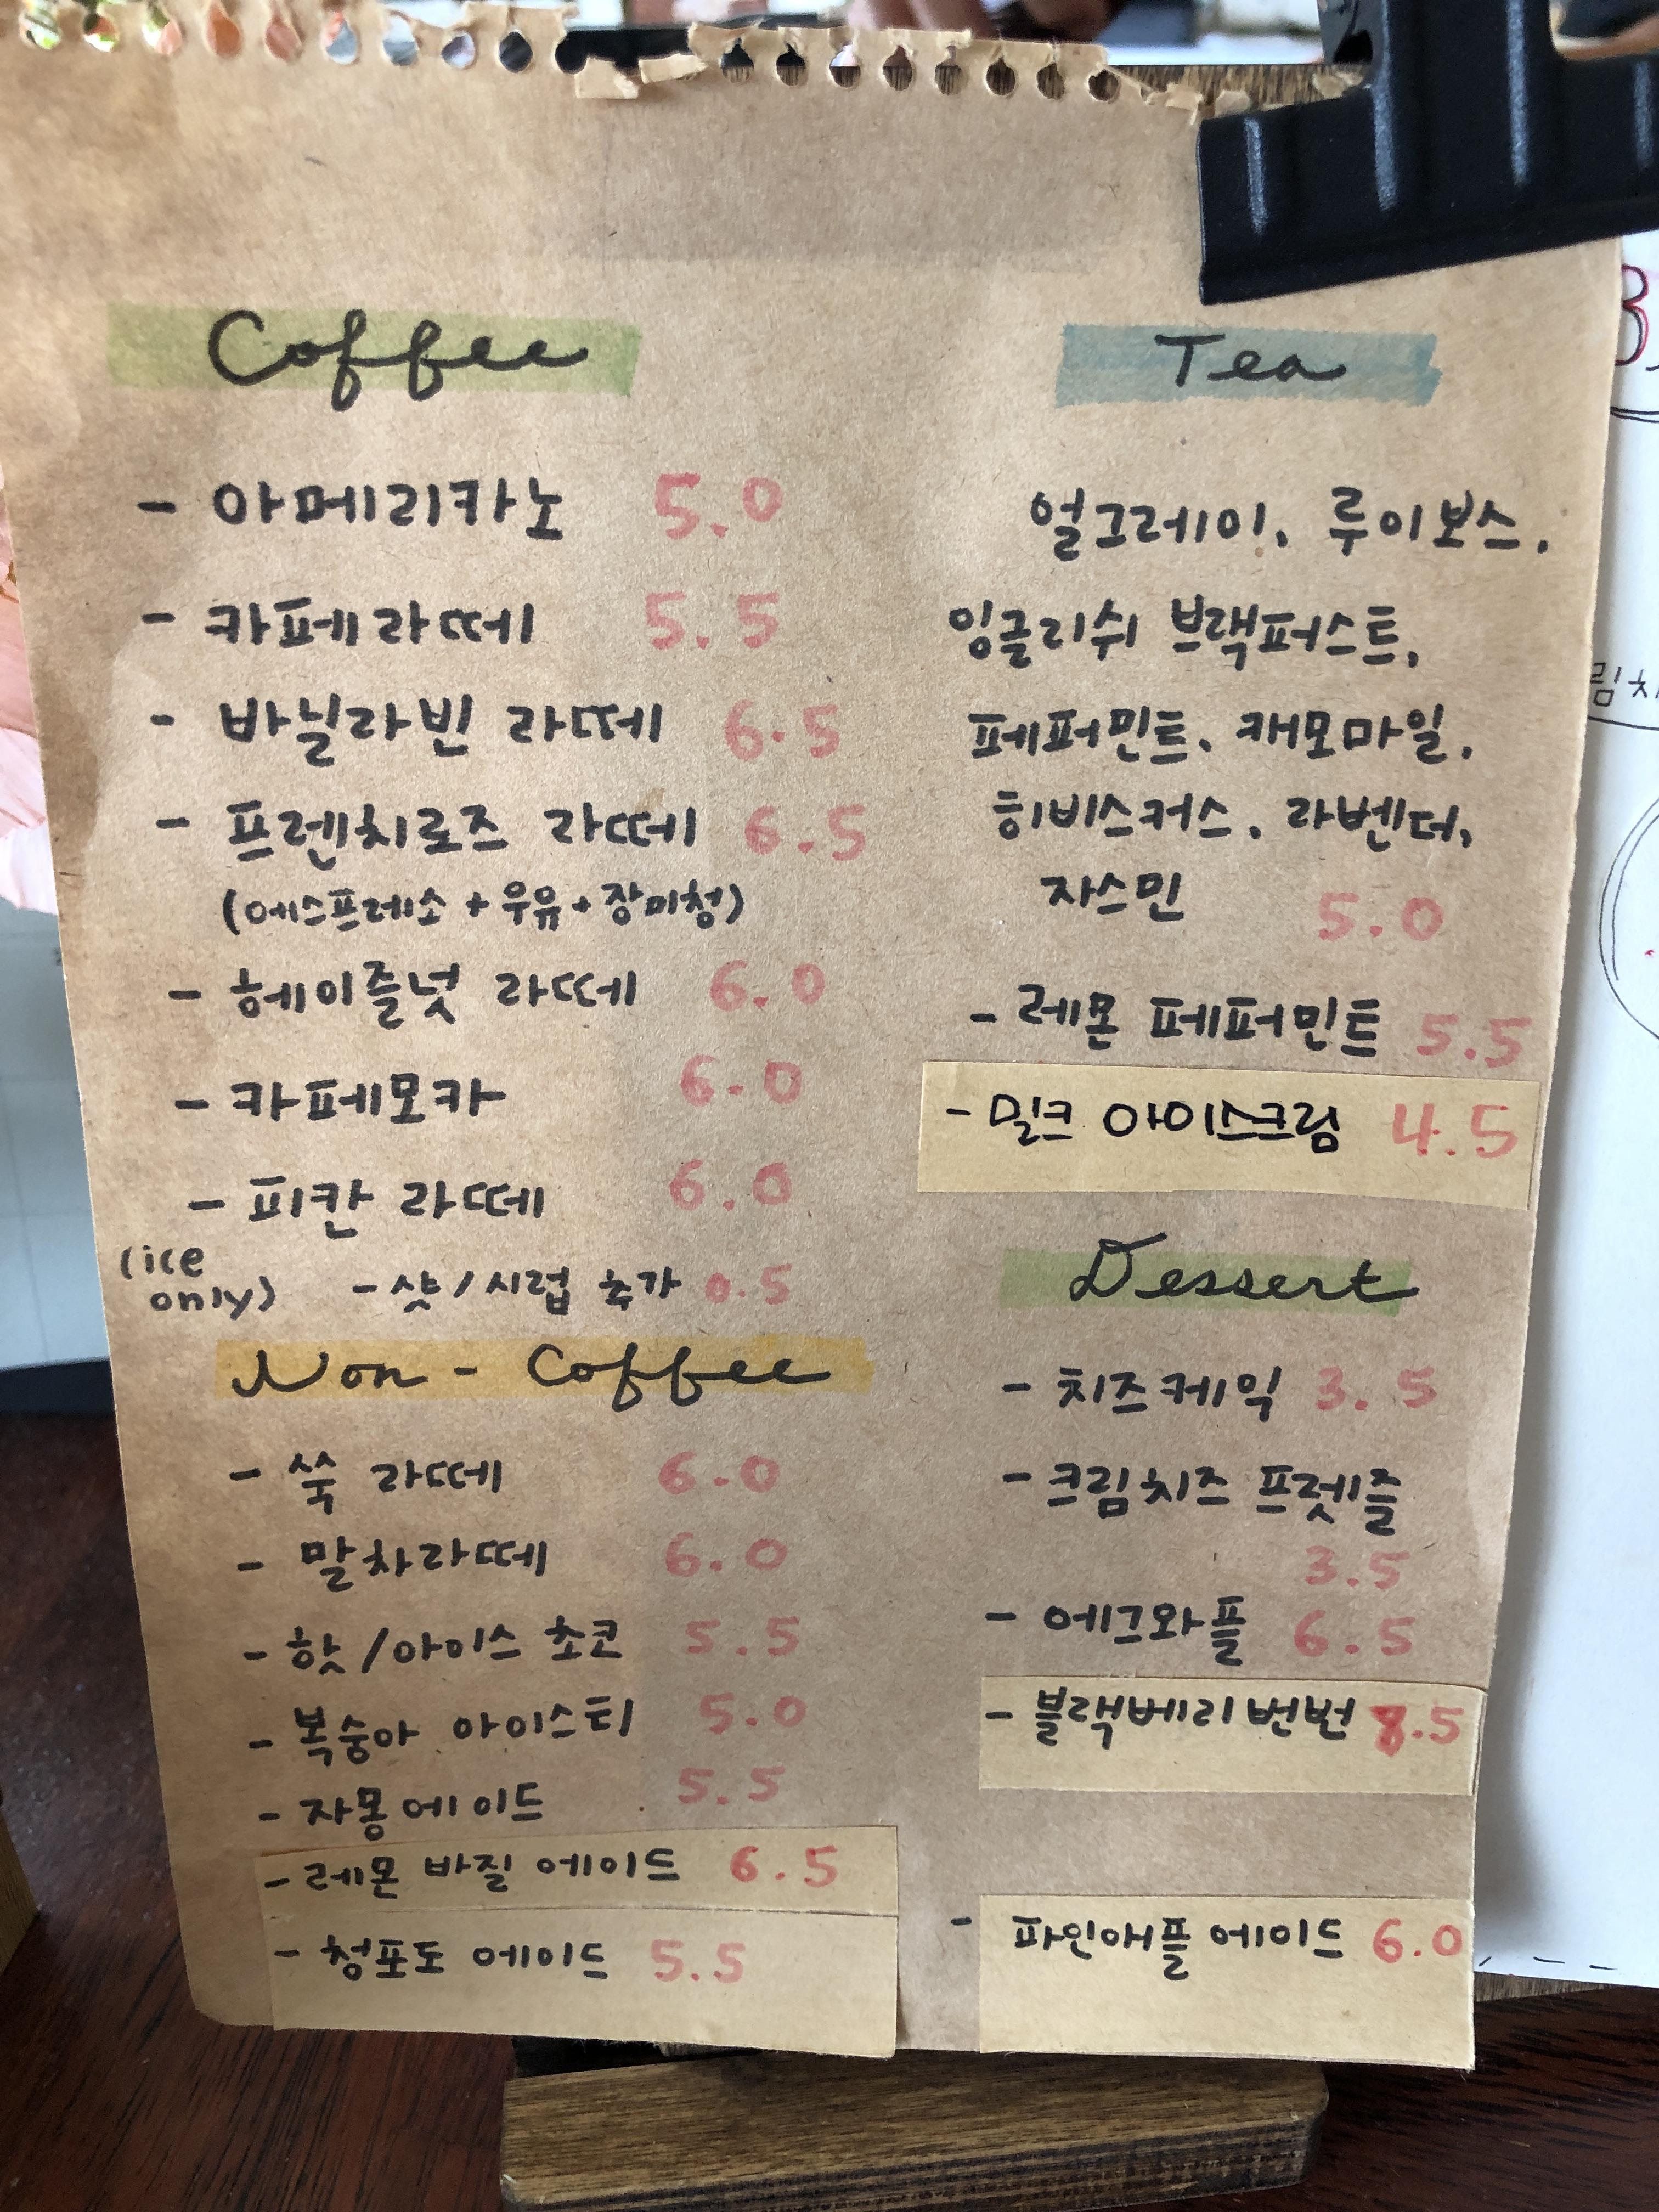 Coffee
- 아메리카노 5.0
- 카페라떼 5.5
- 바닐라빈 라떼 6.5
- 프렌치로즈 라떼 6.5
(에스프레소 + 우유 + 장미청)
- 헤이즐넛 라떼 6.0
- 카페모카 6.0
- 피칸 라떼 6.0
(ice only)
- 샷/시럽 추가 0.5
Non - Coffee
- 쑥 라떼 6.0
- 말차라떼 6.0
- 핫/아이스 초코 5.5
- 복숭아 아이스티 5.0
- 자몽에이드 5.5
- 레몬 바질 에이드 6.5
- 청포도 에이드 5.5
Tea
얼그레이, 루이보스,
잉글리쉬 브랙퍼스트,
페퍼민트, 캐모마일,
히비스커스, 라벤더,
자스민 5.0
- 레몬 페퍼민트 5.5
- 밀크 아이스크림 4.5
Dessert
- 치즈케익 3.5
- 크림치즈 프렛즐
3.5
- 에그와플 6.5
- 블랙베리번번 8.5
- 파인애플 에이드 6.0